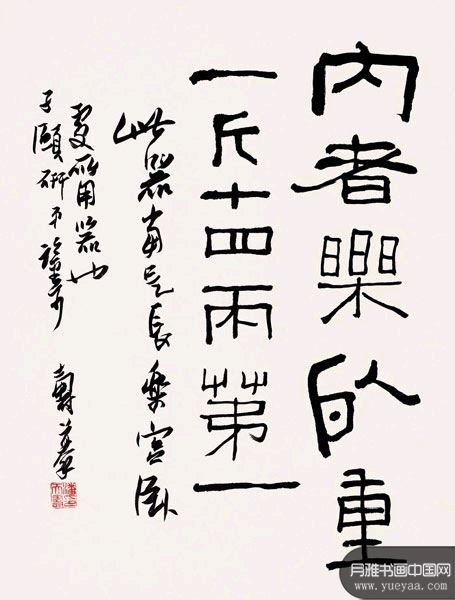 內者樂臥重
一斤十四兩第一
此器當是長樂宮臥
處所用器也
子頤研弟
壽者
月雅书画中国网
www.yueyaa.com